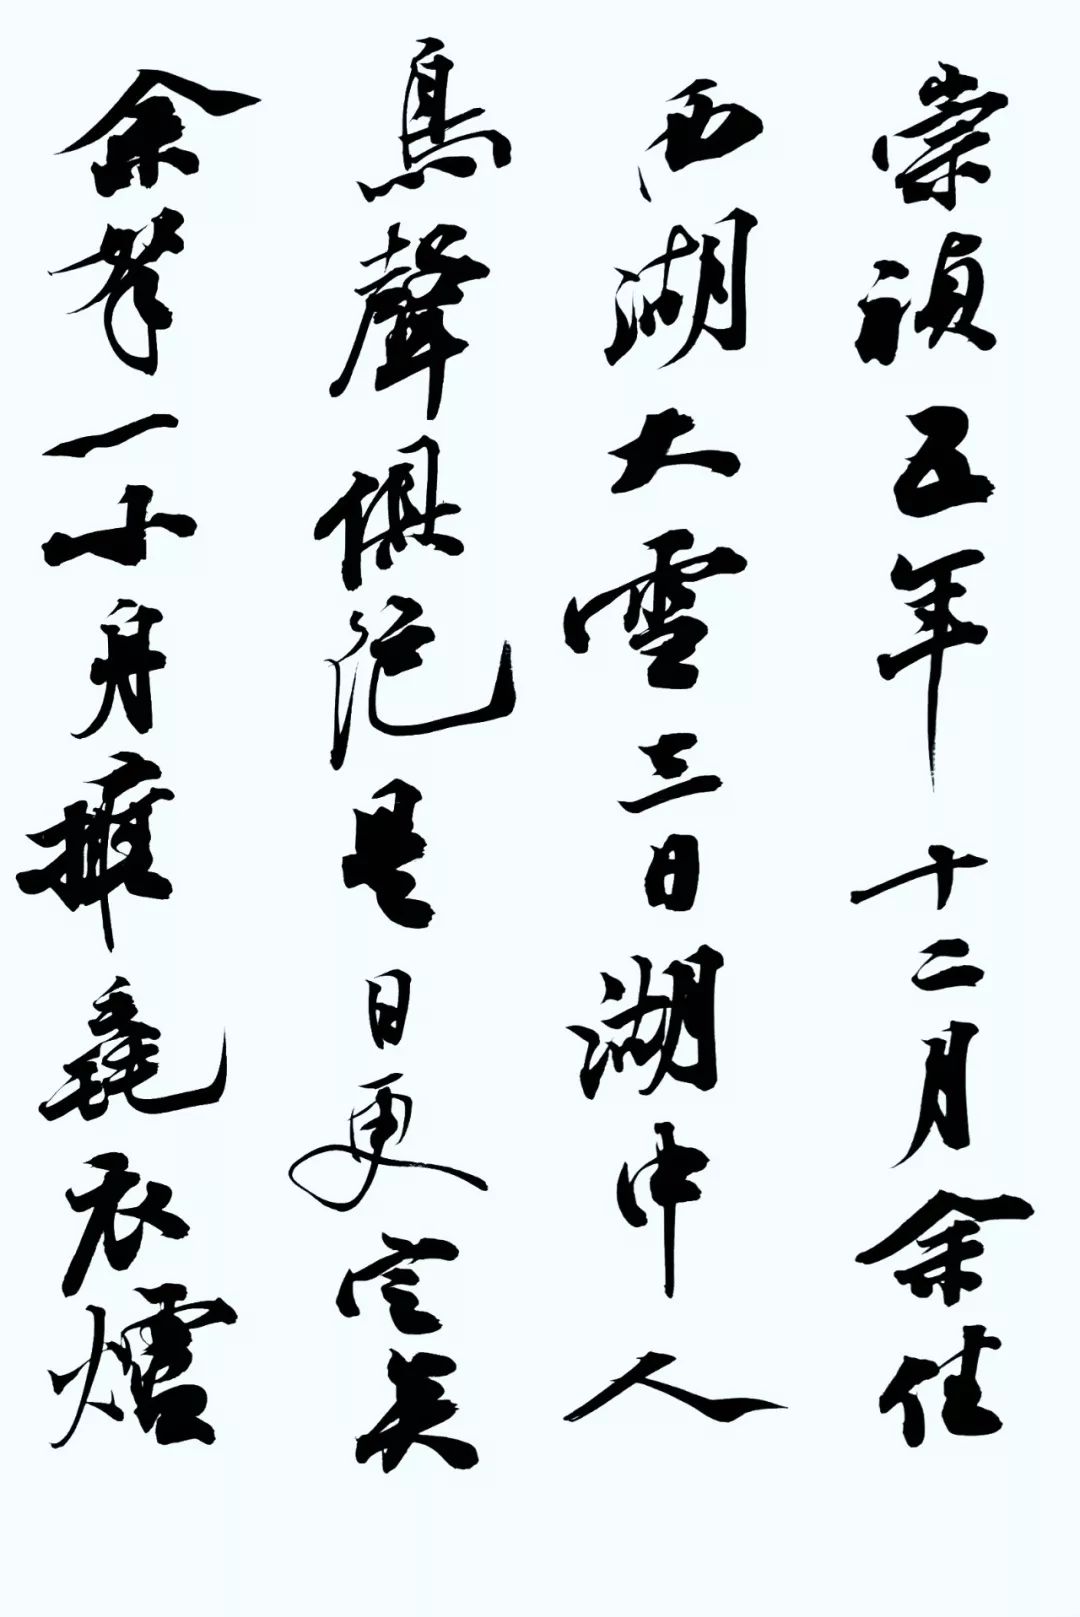 崇禎五年十二月余住
西湖大雪三日湖中人
鳥聲俱絕是日更定矣
余拏一小舟擁毳衣爐